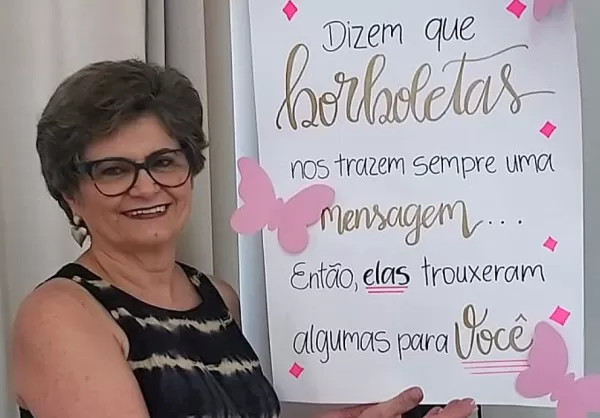 Dizem que
borboletas
nos trazem sempre uma
mensagem...
Então, elas trouxeram
algumas para Você